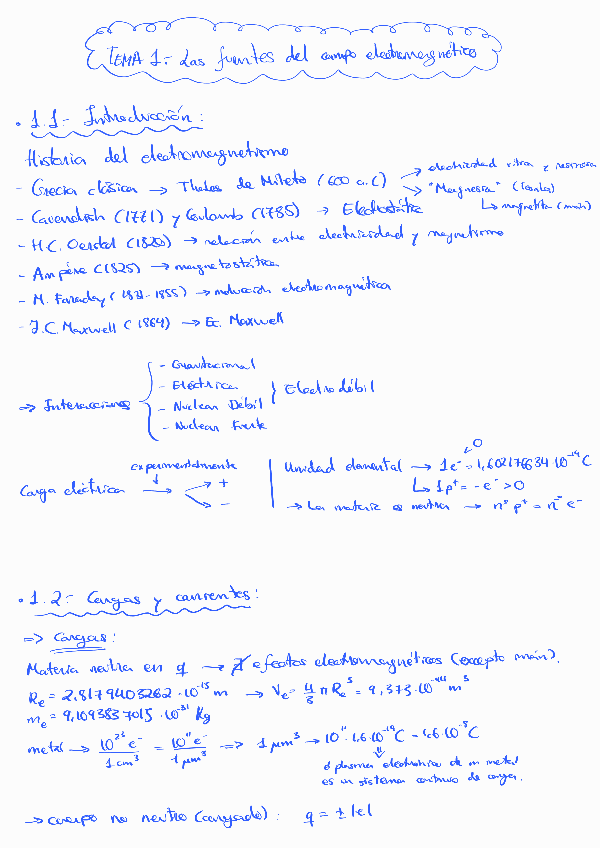 TEMA 1.- Las fuentes del campo electromagnético
• 1.1.- Introducción:
Historia del electromagnetismo
- Grecia clásica → Thales de Mileto (600 a.C) → electricidad vitria y resinosa
→ "Magnesia" (
↳ magnetita (imán)
- Cavendish (1771) y Coulomb (1785) → Electrostática
- H.C. Oersted (1820) → relación entre electricidad y magnetismo
- Ampère (1825) → magnetostática
- M. Faraday (1831-1855) → inducción electromagnética
- J.C. Maxwell (1864) → Ec. Maxwell
- Gravitacional
- Eléctrica
⇒ Interacciones { - Nuclear Débil } Electrodébil
- Nuclear Fuerte
experimentalmente
Carga eléctrica → + -
Unidad elemental → 1e⁻ = 1,602176634·10⁻¹⁹ C
↳ 1p⁺ = -e⁻ > 0
→ La materia es neutra → nº p⁺ = nº e⁻
• 1.2.- Cargas y corrientes:
⇒ Cargas:
Materia neutra en q → ∄ efectos electromagnéticos (excepto imán).
Re = 2,8179403262·10⁻¹⁵ m → Ve = 4/3 π Re³ = 9,373·10⁻⁴⁴ m³
me = 9,1093837015·10⁻³¹ Kg
metal → 10²³ e⁻ / 1 cm³ = 10¹¹ e⁻ / 1 μm³ ⇒ 1 μm³ → 10¹¹·1,6·10⁻¹⁹ C ~ 1,6·10⁻⁸ C
⇓
el plasma electrónico de un metal
es un sistema continuo de carga.
→ cuerpo no neutro (cargado): q = ± |e|